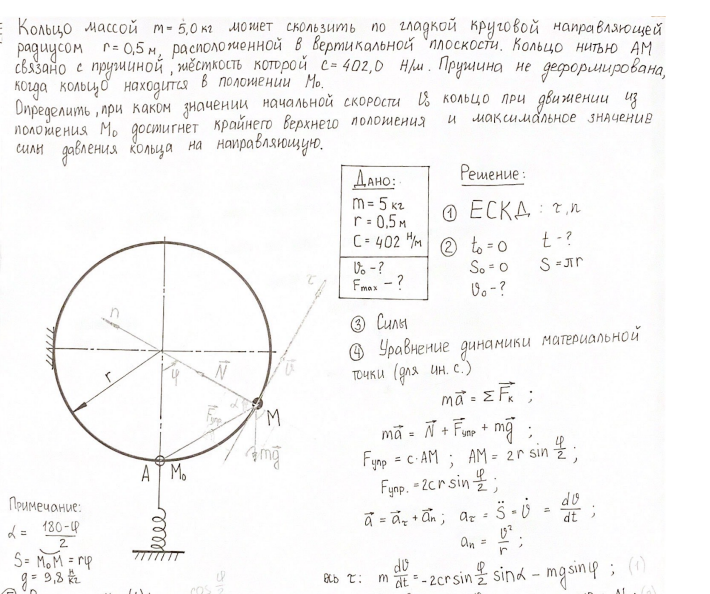 Кольцо массой m = 5,0 кг может скользить по гладкой круговой направляющей
радиусом r = 0,5 м, расположенной в вертикальной плоскости. Кольцо нитью АМ
связано с пружиной, жёсткость которой c = 402,0 Н/м. Пружина не деформирована,
когда кольцо находится в положении M₀.
Определить, при каком значении начальной скорости υ₀ кольцо при движении из
положения M₀ достигнет крайнего верхнего положения и максимальное значение
силы давления кольца на направляющую.
Дано:
m = 5 кг
r = 0,5 м
C = 402 Н/м
υ₀ - ?
Fmax - ?
Решение:
① ЕСКД : τ, n
② t₀ = 0 t - ?
S₀ = 0 S = πr
υ₀ - ?
③ Силы
④ Уравнение динамики материальной
точки (для ин. с.)
ma⃗ = ΣF⃗к ;
ma⃗ = N⃗ + F⃗упр + mg⃗ ;
Fупр = c·AM ; AM = 2r sin φ/2 ;
Fупр. = 2cr sin φ/2 ;
a⃗ = a⃗τ + a⃗n ; aτ = S̈ = υ̇ = dυ/dt ;
an = υ²/r ;
ось τ: m dυ/dt = -2cr sin φ/2 sinα - mg sinφ ; (1)
n
τ
υ⃗
N⃗
φ
r
α
F⃗упр
M
mg⃗
A M₀
Примечание:
α = 180-φ/2
S = M₀M = rφ
g = 9,8 Н/кг